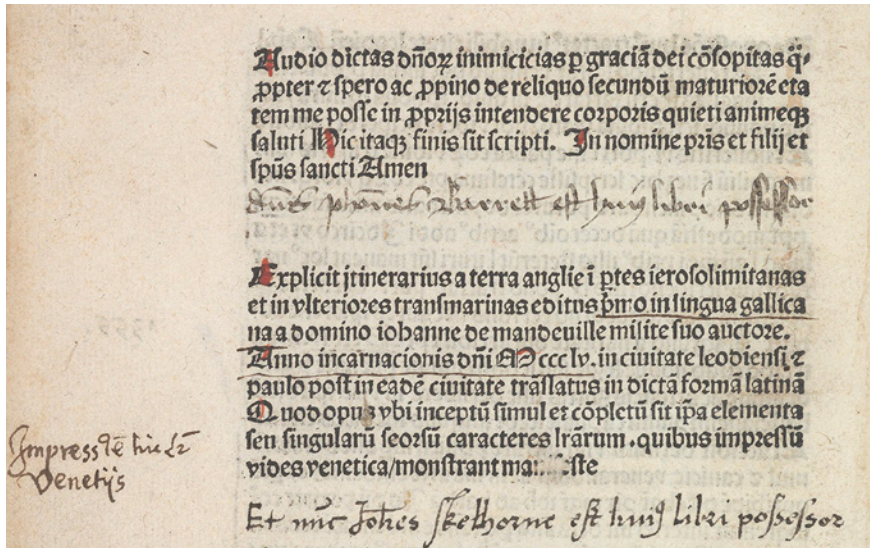 Audio dictas dñoꝝ inimicicias ꝑ graciã dei cõsopitas q̃·
ꝓpter ⁊ spero ac ꝓpino de reliquo secundũ maturiorẽ eta
tem me posse in ꝓprijs intendere corporis quieti animeqꝫ
saluti Hic itaqꝫ finis sit scripti. In nomine pr̃is et filij et
sp̃us sancti Amen
dñs Joh̃nes Barrett est huiꝰ libri possessor
Explicit jtinerarius a terra anglie ĩ ꝑtes ierosolimitanas
et in vlteriores transmarinas editus p̃mo in lingua gallica
na a domino iohanne de mandeuille milite suo auctore.
Anno incarnacionis dñi M ccc lv. in ciuitate leodiensi ⁊
paulo post in eadẽ ciuitate trãslatus in dictã formã latinã
Quod opus vbi inceptũ simul et cõpletũ sit ip̃a elementa
seu singularũ seorsũ caracteres lr̃arum .quibus impressũ
vides venetica/monstrant
Impress
Venetijs
Et nũc Joh̃es Skelhorne est huiꝰ libri possessor